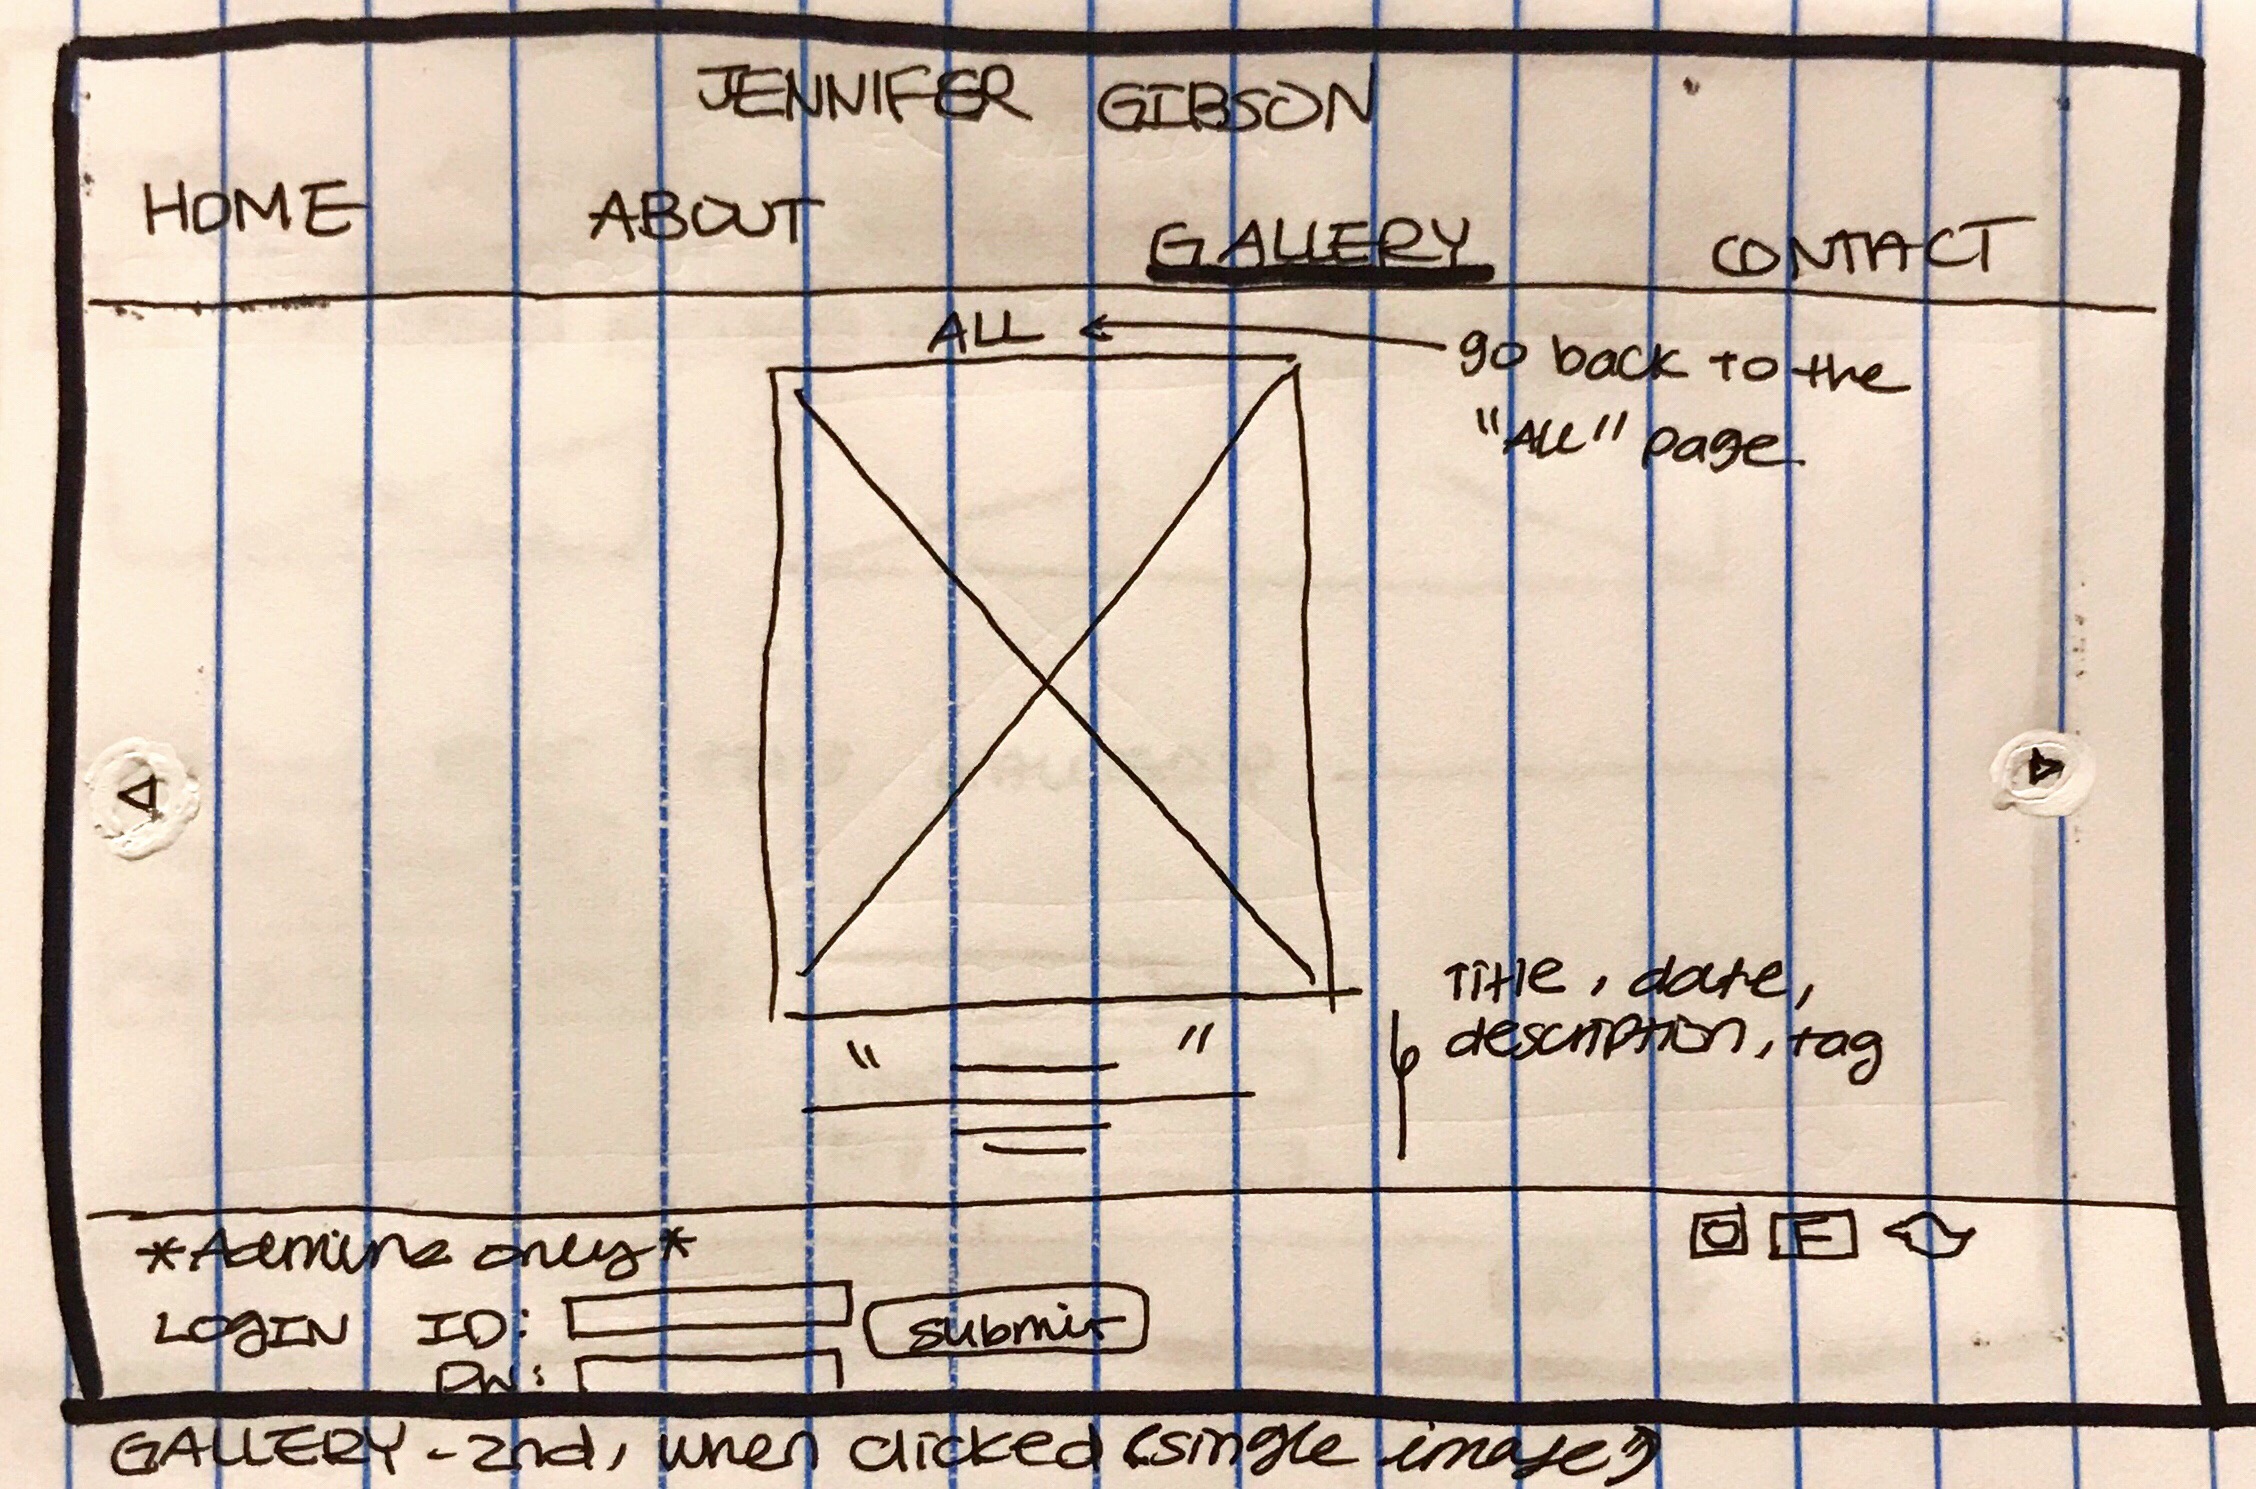 JENNIFER GIBSON
HOME ABOUT GALLERY CONTACT
ALL
go back to the
"ALL" page.
Title, date,
description, tag
" "
*Admins only*
LOGIN ID: submit
PW:
F
GALLERY - 2nd, when clicked (single image)